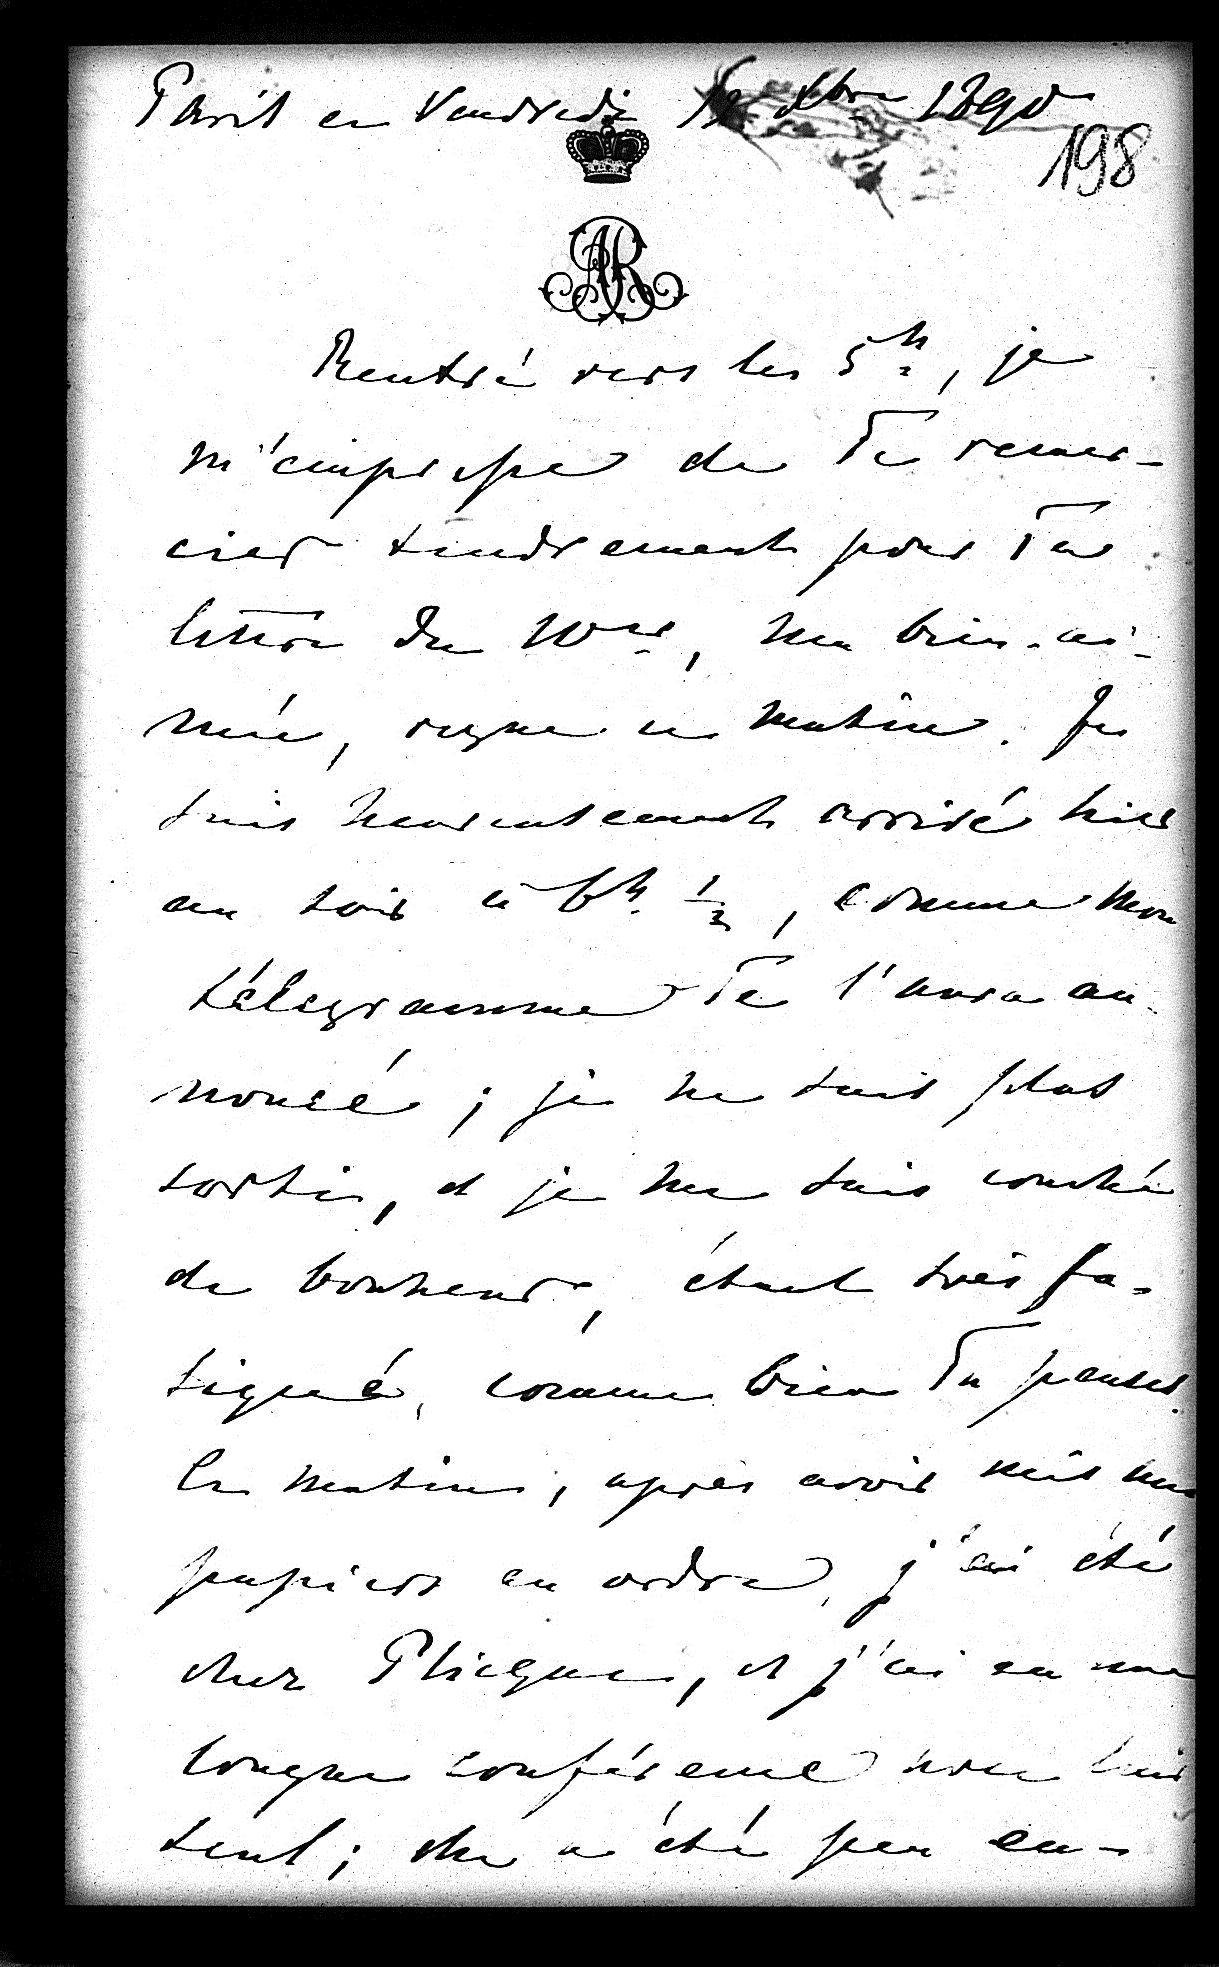 Paris ce Vendredi 12 Xbre 1890
198
AR
Rentré vers les 5h, je
m'empresse de Te remer-
cier tendrement pour Ta
lettre du 10er, ma bien-ai-
mée, reçue ce matin. Je
suis heureusement arrivé hier
au soir à 6h. 1/2, comme mon
télégramme Te l'aura an-
noncé; je ne suis plus
sorti, et je me suis couché
de bonheure, étant très fa-
tigué, comme bien Tu penses.
Ce matin, après avoir mis mes
papiers en ordre, j'ai été
chez Plicque, et j'ai eu une
longue conférence avec lui
seul; elle a été peu en-